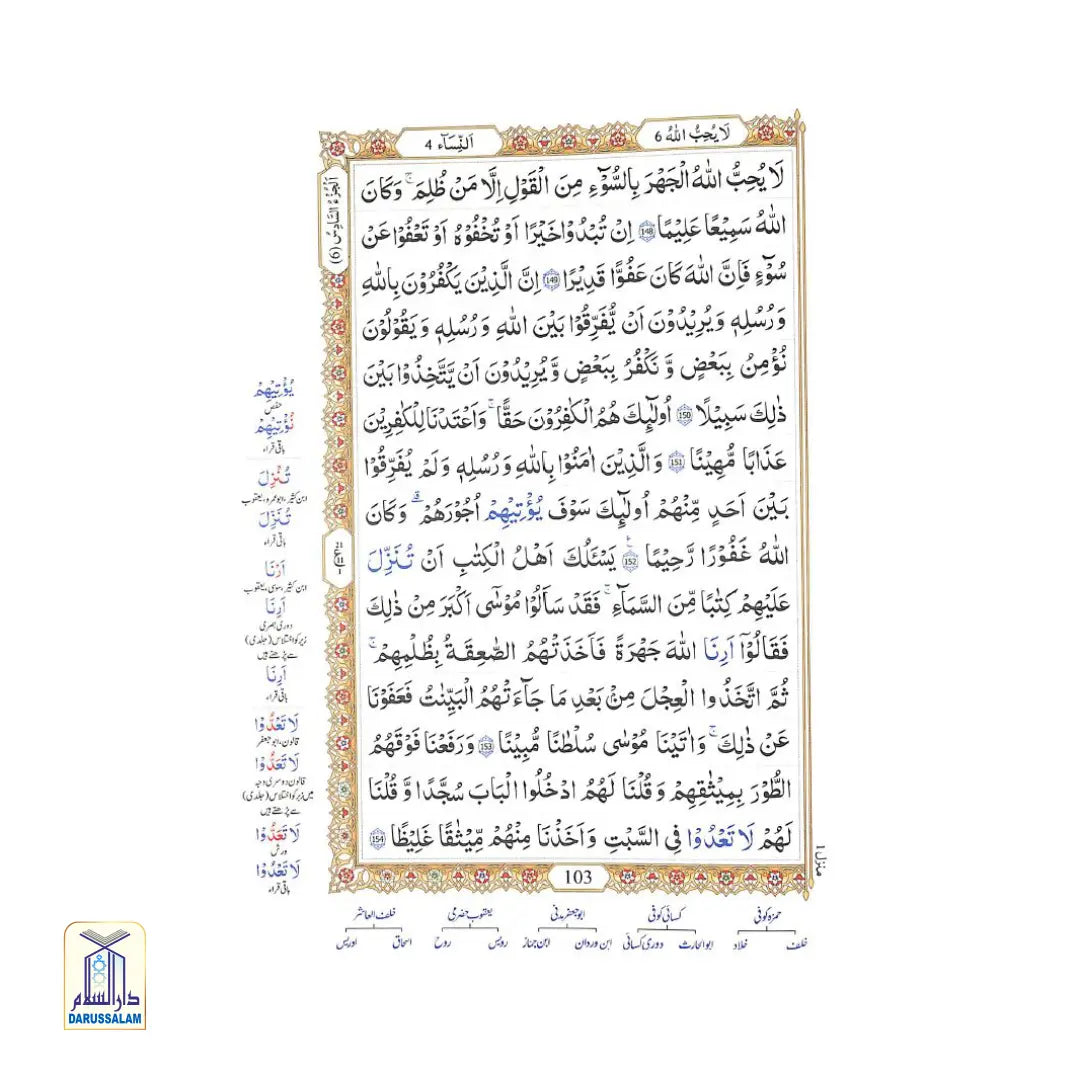 لَا یُحِبُّ اللّٰهُ 6
اَلنِّسَآء 4
اَلْجُزْءُ السَّادِسُ (6)
لَا یُحِبُّ اللّٰهُ الْجَهْرَ بِالسُّوْٓءِ مِنَ الْقَوْلِ اِلَّا مَنْ ظُلِمَ ؕ وَكَانَ
اللّٰهُ سَمِیْعًا عَلِیْمًا 148 اِنْ تُبْدُوْا خَیْرًا اَوْ تُخْفُوْهُ اَوْ تَعْفُوْا عَنْ
سُوْٓءٍ فَاِنَّ اللّٰهَ كَانَ عَفُوًّا قَدِیْرًا 149 اِنَّ الَّذِیْنَ یَكْفُرُوْنَ بِاللّٰهِ
وَرُسُلِهٖ وَیُرِیْدُوْنَ اَنْ یُّفَرِّقُوْا بَیْنَ اللّٰهِ وَرُسُلِهٖ وَیَقُوْلُوْنَ
نُؤْمِنُ بِبَعْضٍ وَّ نَكْفُرُ بِبَعْضٍ وَّیُرِیْدُوْنَ اَنْ یَّتَّخِذُوْا بَیْنَ
ذٰلِكَ سَبِیْلًا 150 اُولٰٓىِٕكَ هُمُ الْكٰفِرُوْنَ حَقًّا ۚ وَاَعْتَدْنَا لِلْكٰفِرِیْنَ
عَذَابًا مُّهِیْنًا 151 وَالَّذِیْنَ اٰمَنُوْا بِاللّٰهِ وَرُسُلِهٖ وَلَمْ یُفَرِّقُوْا
بَیْنَ اَحَدٍ مِّنْهُمْ اُولٰٓىِٕكَ سَوْفَ یُؤْتِیْهِمْ اُجُوْرَهُمْ ؕ وَكَانَ
اللّٰهُ غَفُوْرًا رَّحِیْمًا 152 یَسْـَٔلُكَ اَهْلُ الْكِتٰبِ اَنْ تُنَزِّلَ
عَلَیْهِمْ كِتٰبًا مِّنَ السَّمَآءِ ۚ فَقَدْ سَاَلُوْا مُوْسٰۤى اَكْبَرَ مِنْ ذٰلِكَ
فَقَالُوْۤا اَرِنَا اللّٰهَ جَهْرَةً فَاَخَذَتْهُمُ الصّٰعِقَةُ بِظُلْمِهِمْ ۚ
ثُمَّ اتَّخَذُوا الْعِجْلَ مِنْۢ بَعْدِ مَا جَآءَتْهُمُ الْبَیِّنٰتُ فَعَفَوْنَا
عَنْ ذٰلِكَ ۚ وَاٰتَیْنَا مُوْسٰى سُلْطٰنًا مُّبِیْنًا 153 وَرَفَعْنَا فَوْقَهُمُ
الطُّوْرَ بِمِیْثٰقِهِمْ وَ قُلْنَا لَهُمُ ادْخُلُوا الْبَابَ سُجَّدًا وَّ قُلْنَا
لَهُمْ لَا تَعْدُوْا فِی السَّبْتِ وَاَخَذْنَا مِنْهُمْ مِّیْثٰقًا غَلِیْظًا 154
یُؤْتِیْهِمْ
حفص
نُؤْتِیْهِمْ
باقی قراء
تُنْزِلَ
ابن کثیر، ابوعمرو، یعقوب
تُنَزِّلَ
باقی قراء
اَرْنَا
ابن کثیر، سوسی، یعقوب
اَرِنَا
دوری بصری
زیر کو اختلاس (جلدی)
سے پڑھتے ہیں
اَرِنَا
باقی قراء
لَا تَعْدُّوْا
قالون، ابو جعفر
لَا تَعَدُّوْا
قالون دوسری وجہ
میں زبر کو اختلاس (جلدی)
سے پڑھتے ہیں
لَا تَعَدُّوْا
ورش
لَا تَعْدُوْا
باقی قراء
منزل ١
103
حمزہ کوفی
کسائی کوفی
ابو جعفر مدنی
یعقوب حضرمی
خلف العاشر
خلف
خلاد
ابوالحارث
دوری کسائی
ابن وردان
ابن جماز
رویس
روح
اسحاق
ادریس
دارالسلام
DARUSSALAM